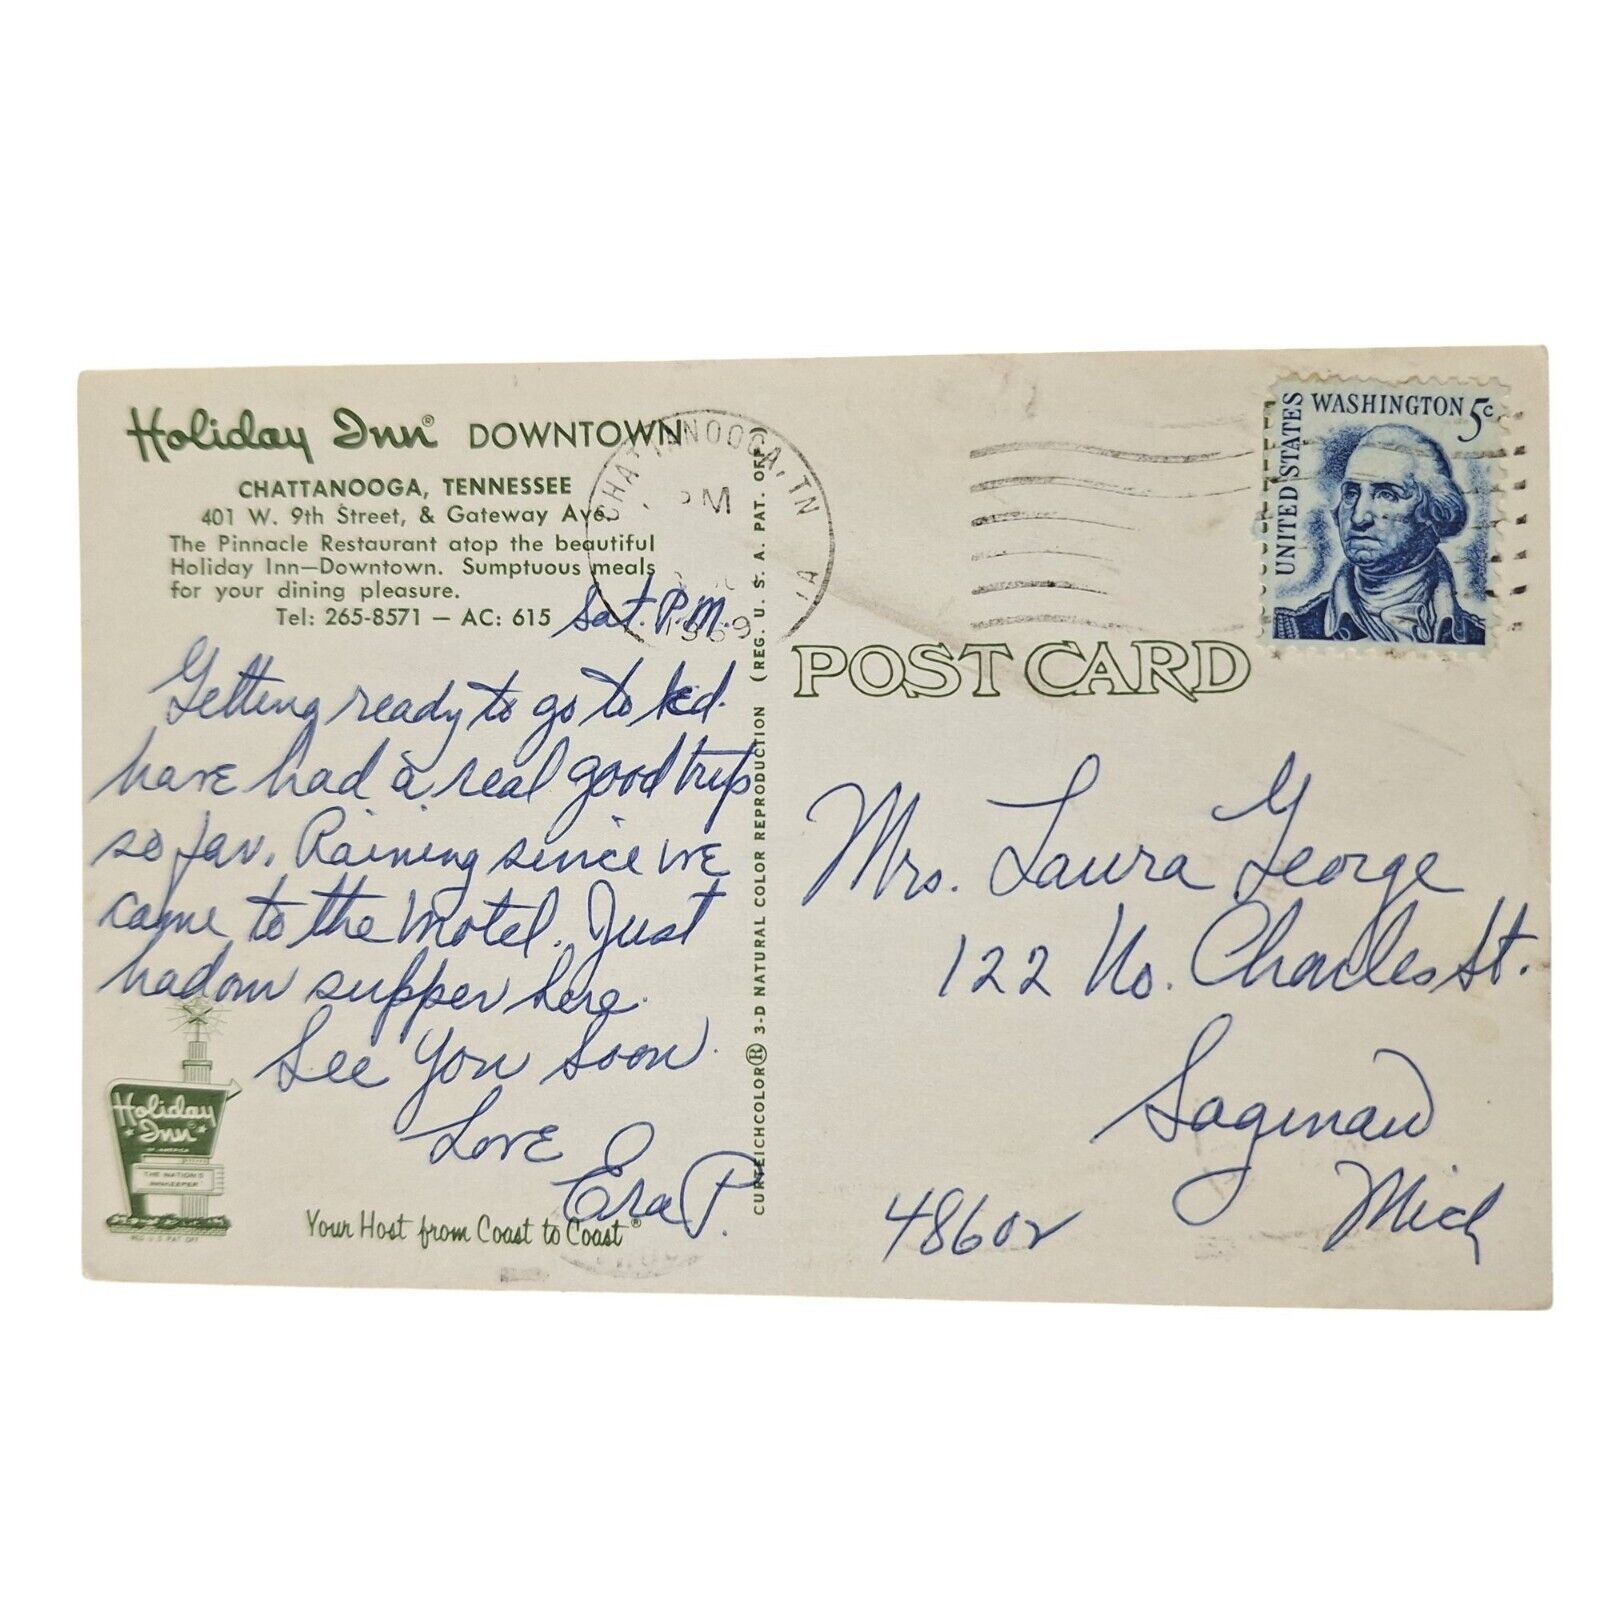 Holiday Inn® DOWNTOWN
CHATTANOOGA, TENNESSEE
401 W. 9th Street, & Gateway Ave.
The Pinnacle Restaurant atop the beautiful
Holiday Inn—Downtown. Sumptuous meals
for your dining pleasure.
Tel: 265-8571 — AC: 615
Sat. P.M.
Getting ready to go to bed.
have had a real good trip
so far. Raining since we
came to the Motel. Just
had our supper here.
See You Soon.
Love
Era P.
Holiday
Inn®
OF AMERICA
THE NATION'S
INNKEEPER
REG U S PAT OFF
Your Host from Coast to Coast®
CURTEICHCOLOR® 3-D NATURAL COLOR REPRODUCTION (REG. U. S. A. PAT. OFF.)
CHATTANOOGA, TN
PM
1969
POST CARD
UNITED STATES
WASHINGTON 5c
Mrs. Laura George
122 No. Charles St.
Saginaw
Mich
48602